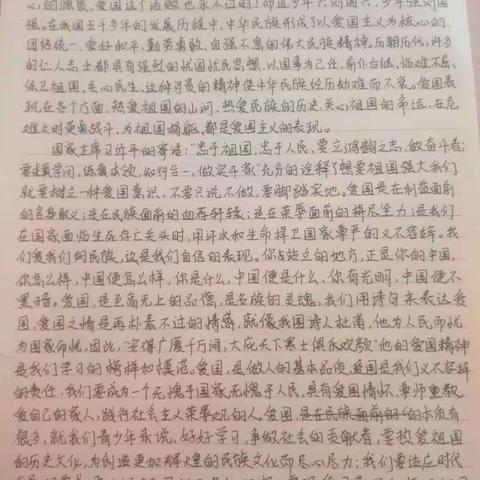 心的源泉,爱国这个话题也永不过时!而且少年兴则国兴,少年强则国
强。在我国五千多年的发展历程中,中华民族形成了以爱国主义为核心的
团结统一、爱好和平、勤劳勇敢、自强不息的伟大民族精神。历朝历代,许多
的仁人志士都具有强烈的忧国忧民思想,以国事为己任,前仆后继,临难不屈,
保卫祖国,关心民生,这种可贵的精神使中华民族经历劫难而不衰。爱国表
现在各个方面,热爱祖国的山河,热爱民族的历史,关心祖国的命运,在危
难之时英勇战斗,为祖国捐躯,都是爱国主义的表现。
国家主席习近平的寄语:“忠于祖国,忠于人民,要立鸿鹄之志,做奋斗者;
要求真学问,练真本领,知行合一,做实干家”充分的诠释了想要祖国强大我们
就要树立一种爱国意识,不要只说不做,要脚踏实地。爱国是在利益面前
的舍身取义;是在民族面前的血荐轩辕;是在荣辱面前的拼尽全力;是我们
在国家面临生死存亡关头时,用汗水和生命捍卫国家尊严的义不容辞。我
们爱我们的民族,这是我们自信的表现。你站立的地方,正是你的中国,
你怎么样,中国便怎么样,你是什么,中国便是什么,你有光明,中国便不
黑暗。爱国,是至高无上的品德,是名族的灵魂,我们用诗句来表达爱
国,爱国之情是再朴素不过的情感,就像我国诗人杜甫,他为人民而忧
为国家而忧,因此,“安得广厦千万间,大庇天下寒士俱欢颜”他的爱国精神
是我们学习的榜样和模范。爱国,是做人的基本品质,爱国是我们义不容辞
的责任,我们要成为一个无愧于国家无愧于人民,具有爱国情怀,尊师重教,
爱自己的家人,践行社会主义荣辱观的人。爱国,是在民族面前的的本质有
很多,就我们青少年来说,好好学习,争做社会的贡献者,要热爱祖国
的历史文化,为创造更加辉煌的民族文化而尽心尽力;我们要适应时代